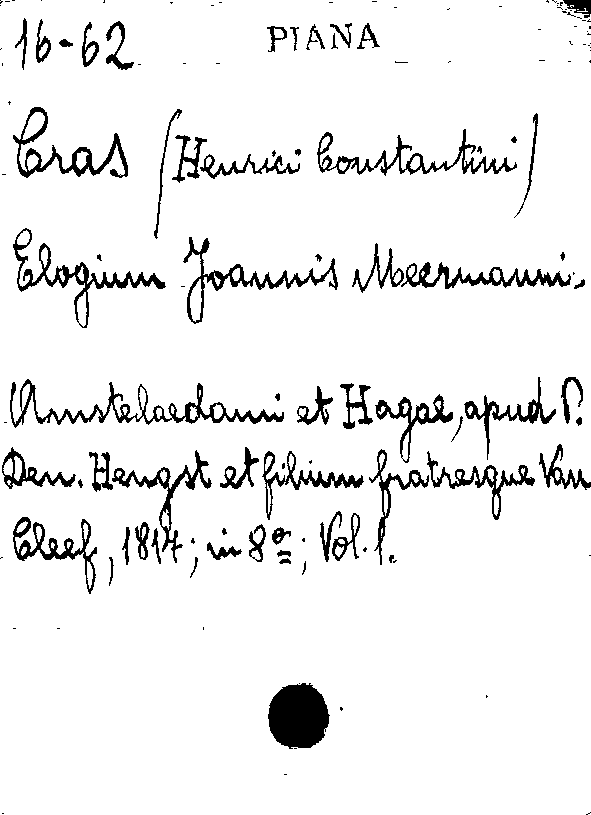 16-62 PIANA
Cras (Henrici Constantini)
Elogium Joannis Meermanni.
Amstelaedami et Hagae, apud P.
Den. Hengst et filium fratresque Van
Cleef, 1817; in 8º; Vol. 1.